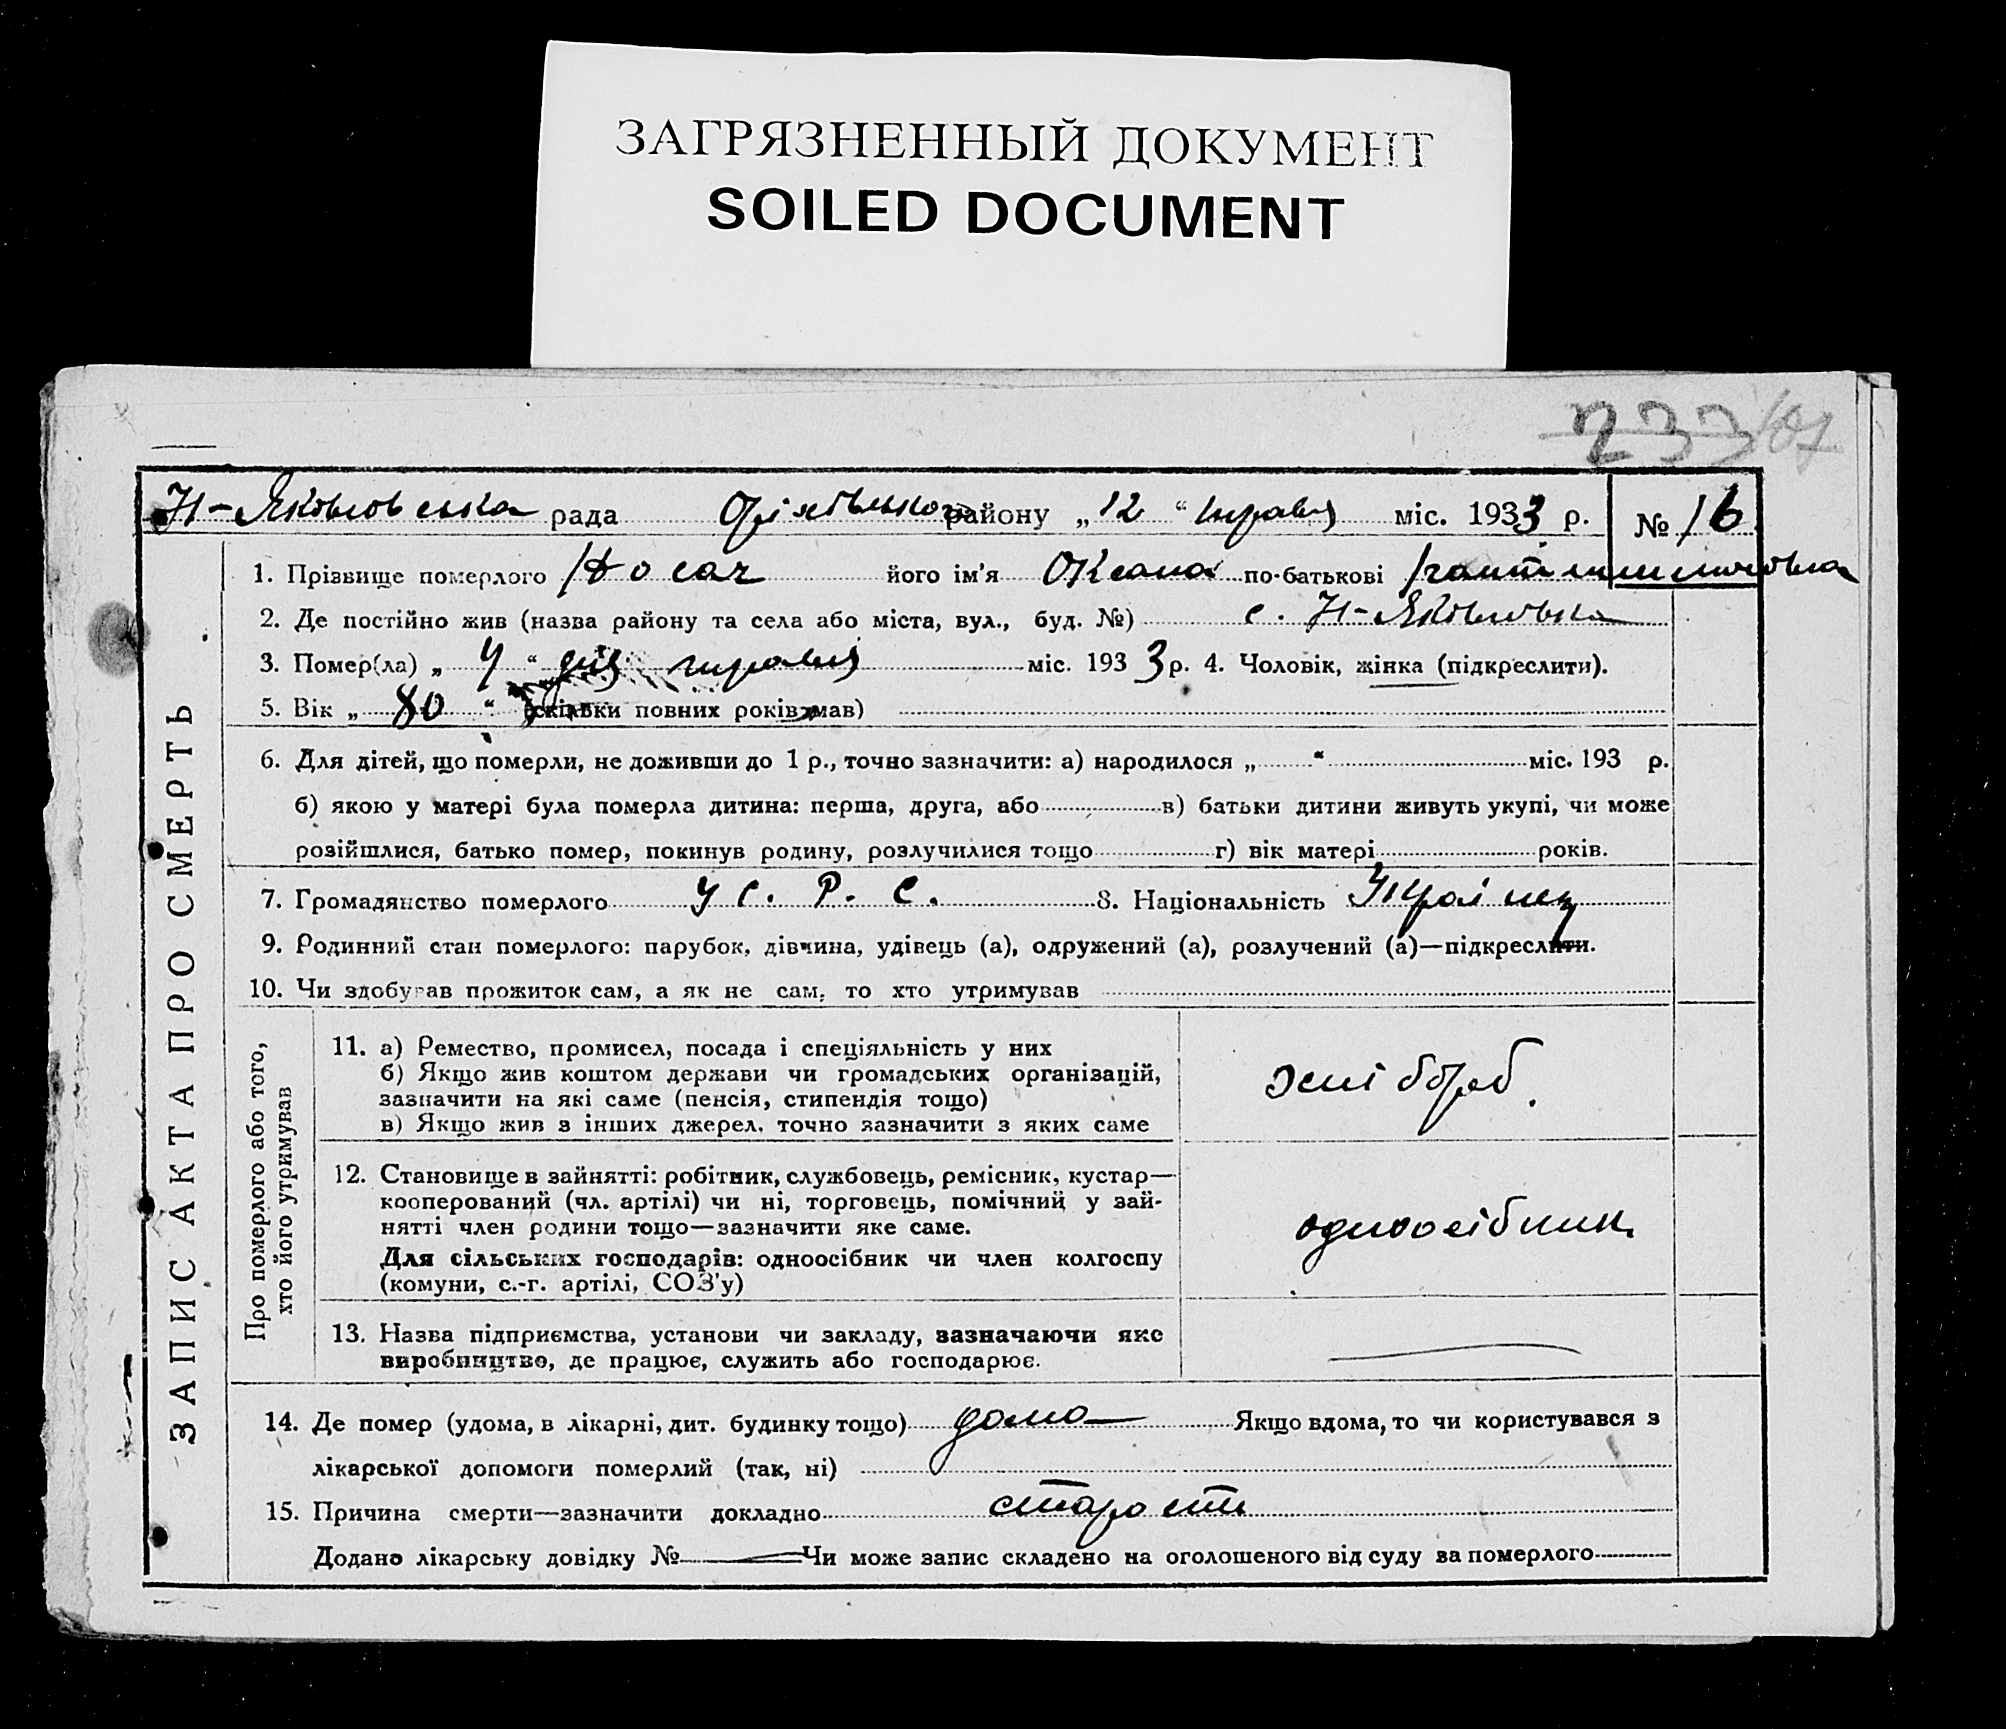 ЗАГРЯЗНЕННЫЙ ДОКУМЕНТ
SOILED DOCUMENT
233
Н-Яковловська рада Оріхівського району „12“ травня міс. 1933 р. № 16
ЗАПИС АКТА ПРО СМЕРТЬ
1. Прізвище померлого Носач його ім'я Оксана по-батькові
2. Де постійно жив (назва району та села або міста, вул., буд. №) с. Н-Яковловка
3. Помер(ла) „ 4 “ дня травня міс. 1933 р. 4. Чоловік, жінка (підкреслити).
5. Вік „ 80 “ (скільки повних років мав)
6. Для дітей, що померли, не доживши до 1 р., точно зазначити: а) народилося „ “ міс. 193 р.
б) якою у матері була померла дитина: перша, друга, або в) батьки дитини живуть укупі, чи може
розійшлися, батько помер, покинув родину, розлучилися тощо г) вік матері років.
7. Громадянство померлого У С. Р. С. 8. Національність Україн
9. Родинний стан померлого: парубок, дівчина, удівець (а), одружений (а), розлучений (а)—підкреслити.
10. Чи здобував прожиток сам, а як не сам, то хто утримував
Про померлого або того,
хто його утримував
11. а) Ремество, промисел, посада і спеціяльність у них
б) Якщо жив коштом держави чи громадських організацій,
зазначити на які саме (пенсія, стипендія тощо)
в) Якщо жив з інших джерел, точно зазначити з яких саме
хлібороб.
12. Становище в зайнятті: робітник, службовець, ремісник, кустар—
кооперований (чл. артілі) чи ні, торговець, помічний у зай-
нятті член родини тощо—зазначити яке саме.
Для сільських господарів: одноосібник чи член колгоспу
(комуни, с.-г. артілі, СОЗ'у)
одноосібник
13. Назва підприємства, установи чи закладу, зазначаючи яке
виробництво, де працює, служить або господарює.
14. Де помер (удома, в лікарні, дит. будинку тощо) дома Якщо вдома, то чи користувався з
лікарської допомоги померлий (так, ні)
15. Причина смерти—зазначити докладно старости
Додано лікарську довідку № Чи може запис складено на оголошеного від суду за померлого